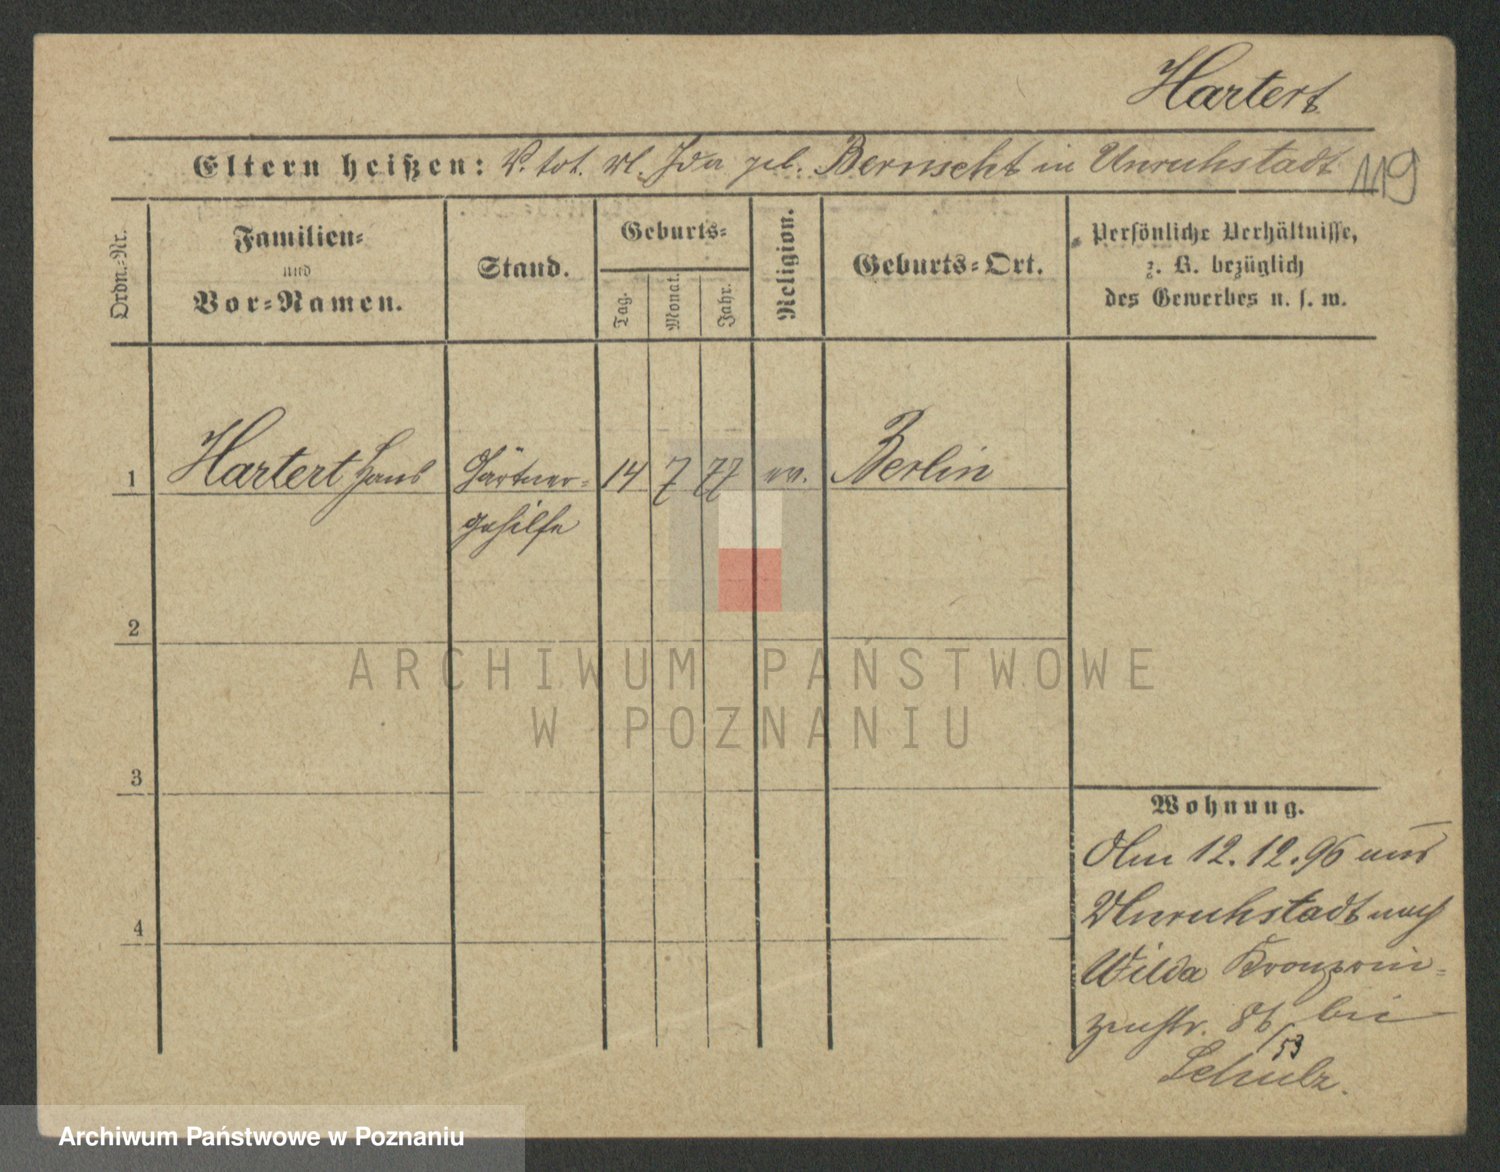 Hartert
Eltern heißen: V. tot. M. Ida geb. Bernscht in Unruhstadt
119
Ordn.-Nr.
Familien-
und
Vor-Namen.
Stand.
Geburts-
Tag.
Monat.
Jahr.
Religion.
Geburts-Ort.
Persönliche Verhältnisse,
z. B. bezüglich
des Gewerbes u. s. w.
1 Hartert Hans Gärtner- 14 7 77 ev. Berlin
gehilfe
2
3
4
Wohnung.
Am 12.12.96 aus
Unruhstadt nach
Wilda Kronprin-
zenstr. 86/53 bei
Schulz.
ARCHIWUM PAŃSTWOWE
W POZNANIU
Archiwum Państwowe w Poznaniu